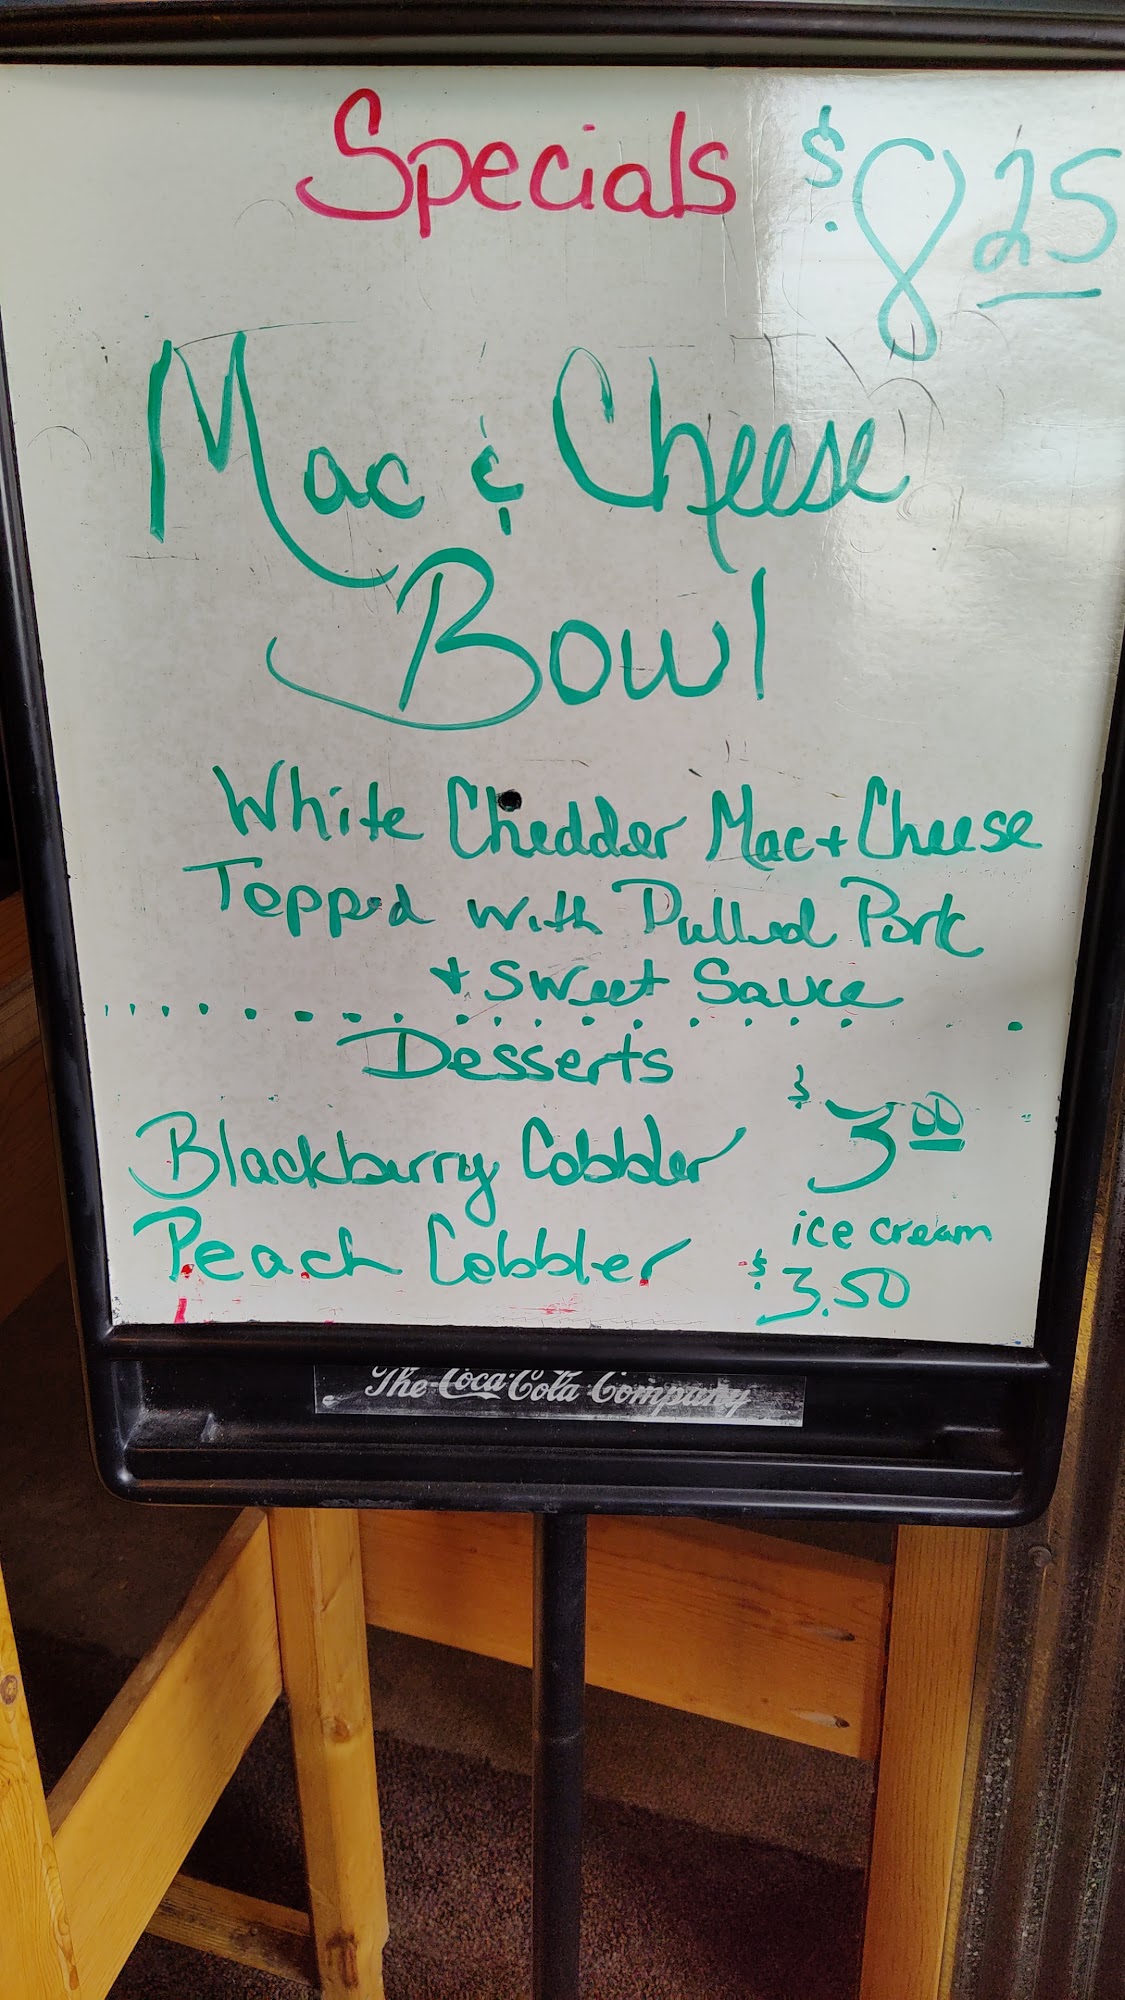 Specials $8.25
Mac & Cheese
Bowl
White Chedder Mac + Cheese
Topped with Pulled Pork
+ Sweet Sauce
Desserts
Blackburry Cobbler $3.00
Peach Cobbler ice cream
$3.50
The Coca-Cola Company